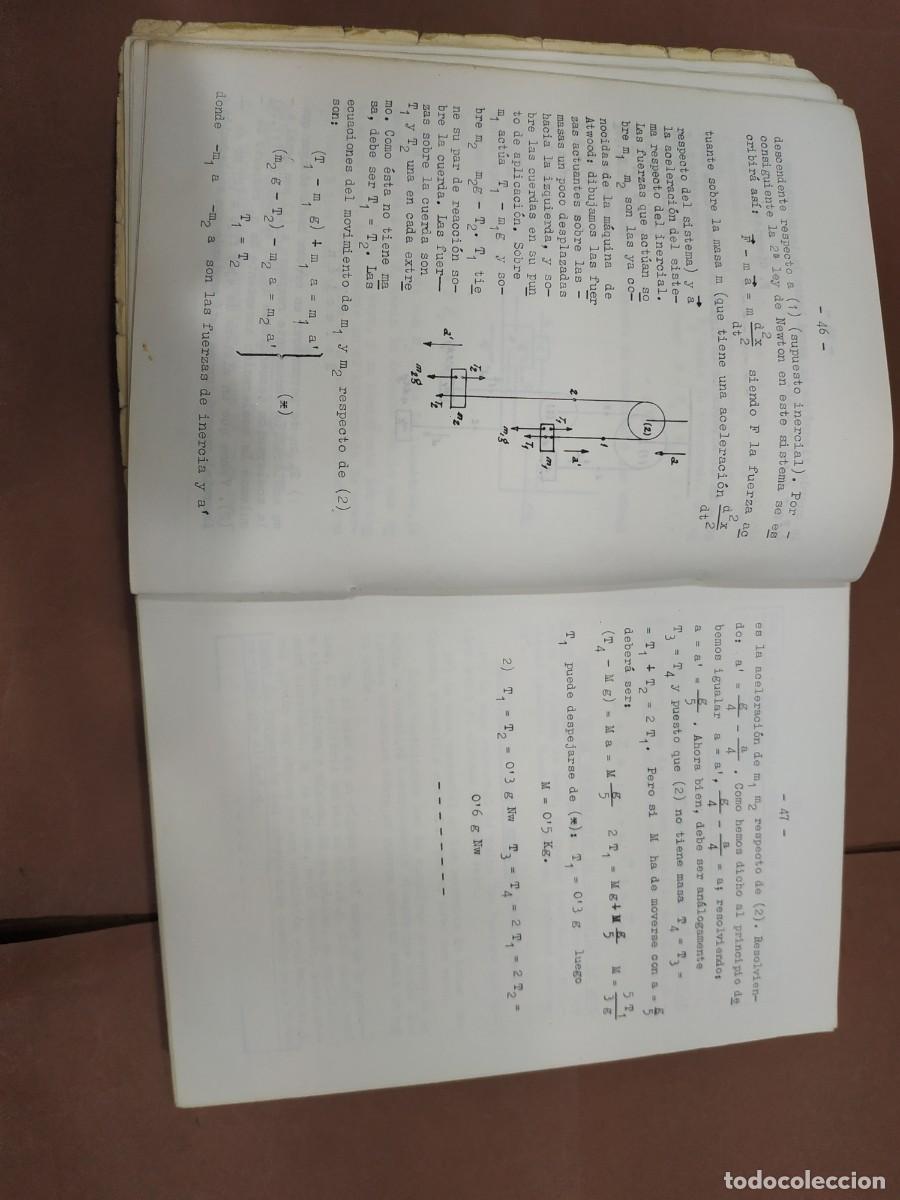 - 46 -
descendente respecto a (1) (supuesto inercial). Por -
consiguiente la 2ª ley de Newton en este sistema se es
cribirá así: F⃗ - m a⃗ = m d²x/dt² siendo F la fuerza ac
tuante sobre la masa m (que tiene una aceleración d²x/dt²
respecto del sistema) y a⃗
la aceleración del siste-
ma respecto del inercial.
Las fuerzas que actúan so
bre m₁ m₂ son las ya co-
nocidas de la máquina de
Atwood: dibujamos las fuer
zas actuantes sobre las -
masas un poco desplazadas
hacia la izquierda, y so-
bre las cuerdas en su pun
to de aplicación. Sobre
m₁ actúa T₁ - m₁g y so-
bre m₂ m₂g - T₂. T₁ tie
ne su par de reacción so-
bre la cuerda. Las fuer—
zas sobre la cuerda son
T₁ y T₂ una en cada extre
mo. Como ésta no tiene ma
sa, debe ser T₁ = T₂. Las
ecuaciones del movimiento de m₁ y m₂ respecto de (2)
son:
(2)
a
2
1
T₁
a'
m₁
T₁
m₁g
T₂
m₂
T₂
m₂g
a'
(T₁ - m₁ g) + m₁ a = m₁ a'
(m₂ g - T₂) - m₂ a = m₂ a' (*)
T₁ = T₂
donde -m₁ a -m₂ a son las fuerzas de inercia y a'
- 47 -
es la aceleración de m₁ m₂ respecto de (2). Resolvien-
do: a' = g/4 - a/4 . Como hemos dicho al principio de
bemos igualar a = a', g/4 - a/4 = a; resolviendo:
a = a' = g/5 . Ahora bien, debe ser análogamente
T₃ = T₄ y puesto que (2) no tiene masa T₄ = T₃ =
= T₁ + T₂ = 2 T₁. Pero si M ha de moverse con a = g/5
deberá ser:
(T₄ - M g) = M a = M g/5 2 T₁ = M g + M g/5 M = 5 T₁/3 g
T₁ puede despejarse de (*): T₁ = 0'3 g luego
M = 0'5 Kg.
2) T₁ = T₂ = 0'3 g Nw T₃ = T₄ = 2 T₁ = 2 T₂ =
0'6 g Nw
- - - - - - - -
todocoleccion